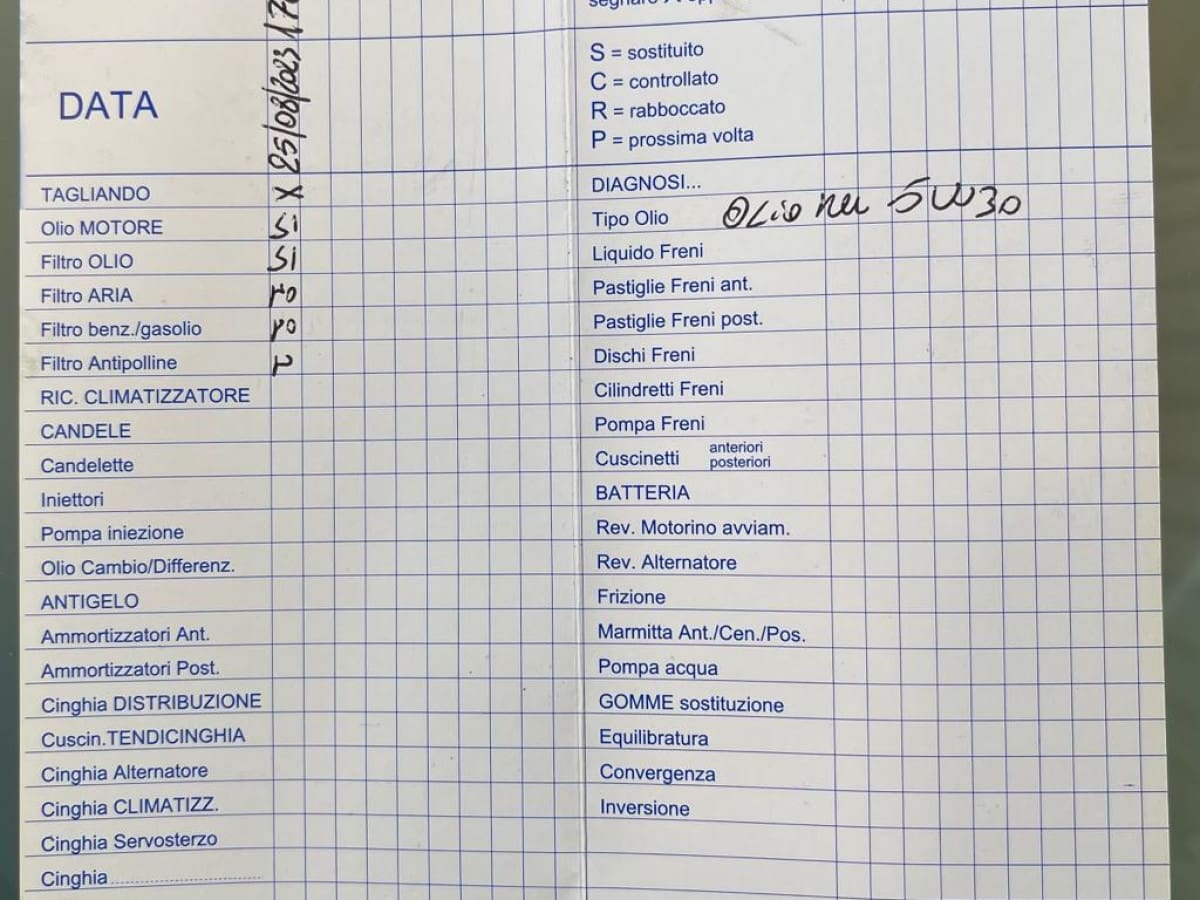 DATA
25/08/2023
TAGLIANDO X
Olio MOTORE SI
Filtro OLIO SI
Filtro ARIA
Filtro benz./gasolio
Filtro Antipolline
RIC. CLIMATIZZATORE
CANDELE
Candelette
Iniettori
Pompa iniezione
Olio Cambio/Differenz.
ANTIGELO
Ammortizzatori Ant.
Ammortizzatori Post.
Cinghia DISTRIBUZIONE
Cuscin.TENDICINGHIA
Cinghia Alternatore
Cinghia CLIMATIZZ.
Cinghia Servosterzo
Cinghia
S = sostituito
C = controllato
R = rabboccato
P = prossima volta
DIAGNOSI...
Tipo Olio OLio 5W30
Liquido Freni
Pastiglie Freni ant.
Pastiglie Freni post.
Dischi Freni
Cilindretti Freni
Pompa Freni
Cuscinetti anteriori
posteriori
BATTERIA
Rev. Motorino avviam.
Rev. Alternatore
Frizione
Marmitta Ant./Cen./Pos.
Pompa acqua
GOMME sostituzione
Equilibratura
Convergenza
Inversione